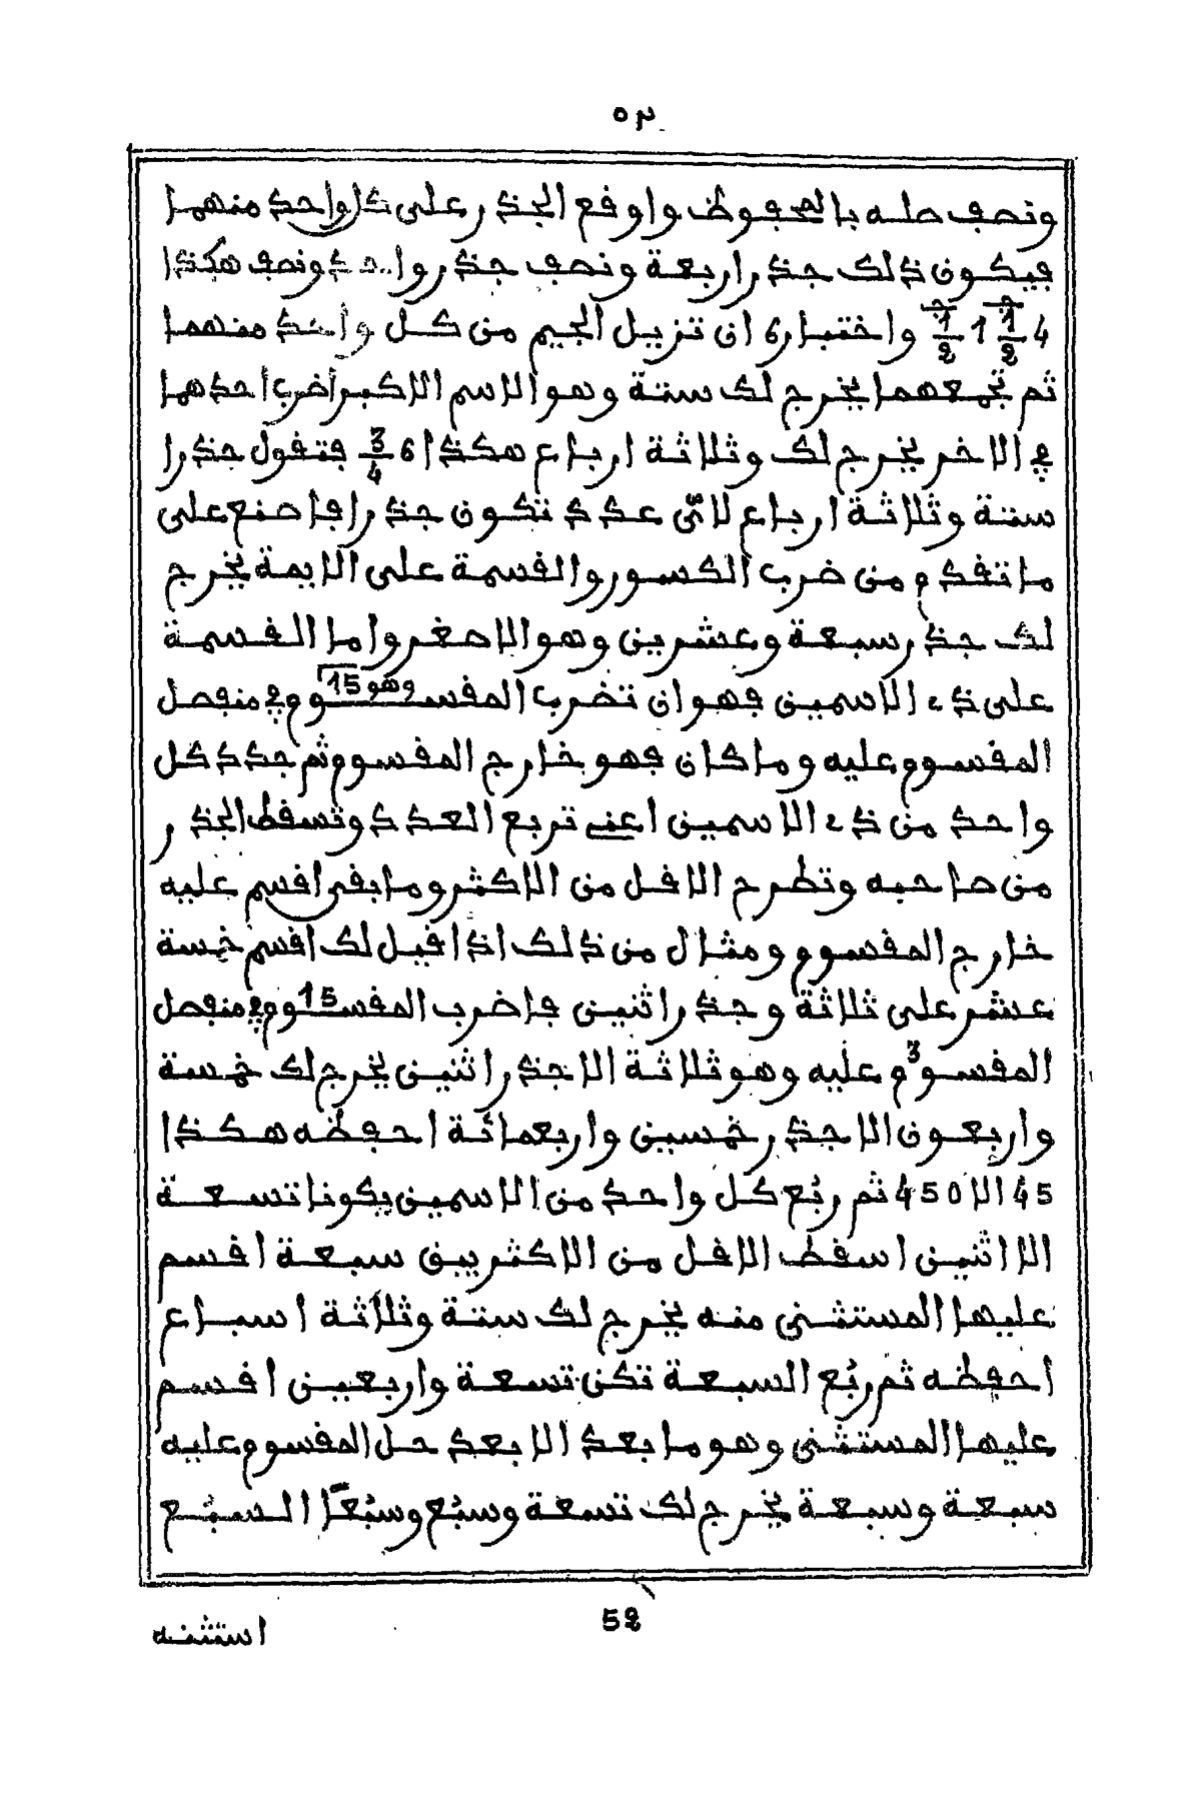 ٥٢
ونصف صله بالمحفوظ واوقع الجذر على كل واحد منهما
فيكون ذلك جذر اربعة ونصف جذر واحد ونصف هكذا
4 1/2 1 1/2 واختباره ان تزيل الجيم من كل واحد منهما
ثم تجمعهما يخرج لك ستة وهو الاسم الاكبر اضرب احدهما
في الاخر يخرج لك وثلاثة ارباع هكذا 6 3/4 فتقول جذرا
ستة وثلاثة ارباع لأيّ عدد تكون جذرا فاصنع على
ما تقدم من ضرب الكسور والقسمة على الايمة يخرج
لك جذر سبعة وعشرين وهو الاصغر واما القسمة
على ذي الاسمين فهو ان تضرب المقسوم وهو 15 في منفصل
المقسوم عليه وما كان فهو خارج المقسوم ثم جدد كل
واحد من ذي الاسمين اعني تربع العدد وتسقط الجذر
من صاحبه وتطرح الاقل من الاكثر وما بقى اقسم عليه
خارج المقسوم ومثال من ذلك اذا قيل لك اقسم خمسة
عشر على ثلاثة وجذر اثنين فاضرب المقسوم 15 في منفصل
المقسوم 3 عليه وهو ثلاثة الا جذر اثنين يخرج لك خمسة
واربعون الا جذر خمسين واربعمائة احفظه هكذا
45 الا 450 ثم ربّع كل واحد من الاسمين يكونا تسعة
الا اثنين اسقط الاقل من الاكثر يبق سبعة اقسم
عليها المستثنى منه يخرج لك ستة وثلاثة اسباع
احفظه ثم ربّع السبعة تكن تسعة واربعين اقسم
عليها المستثنى وهو ما بعد الا بعد حل المقسوم عليه
سبعة وسبعة يخرج لك تسعة وسبُع وسبُعَا السبُع
52
استثنه